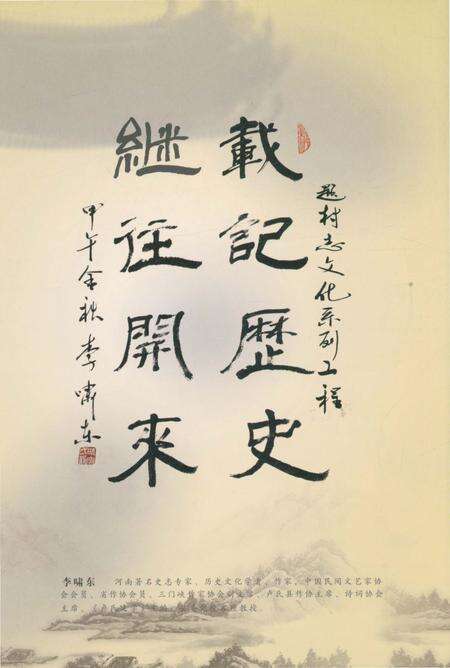 题村志文化系列工程
載記歴史
継往開來
甲午金秋 李嘯东
李啸东 河南著名史志专家、历史文化学者、作家、中国民间文艺家协
会会员、省作协会员、三门峡作家协会副主席、卢氏县作协主席、诗词协会
主席、教授。